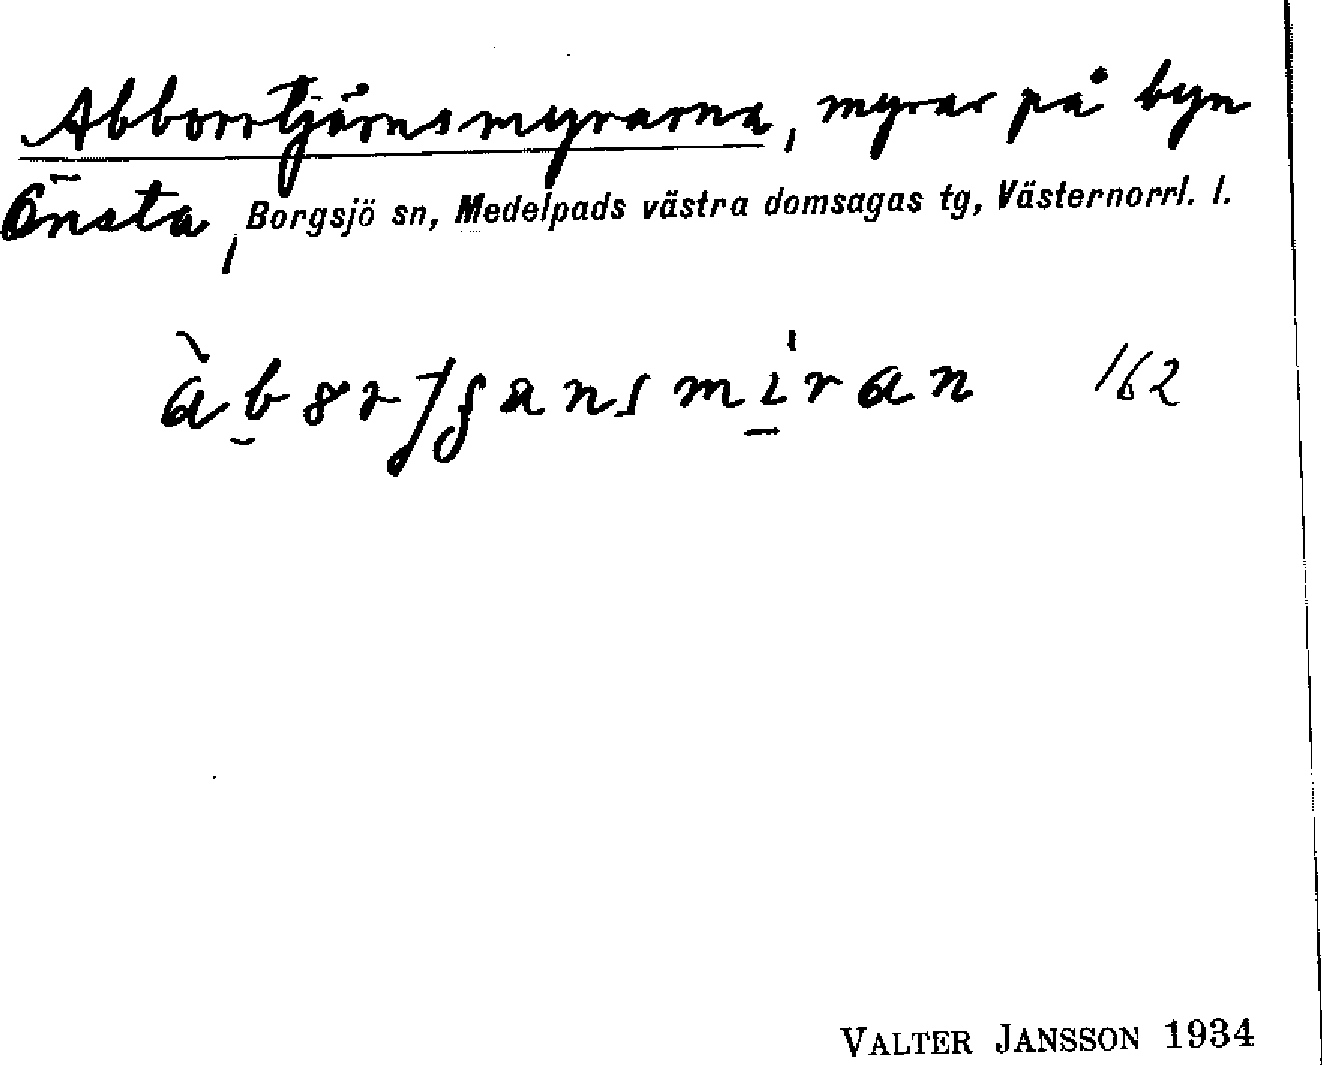 Abborrtjärnsmyrarna, myrar på byn
Önsta, Borgsjö sn, Medelpads västra domsagas tg, Västernorrl. l.
162
VALTER JANSSON 1934